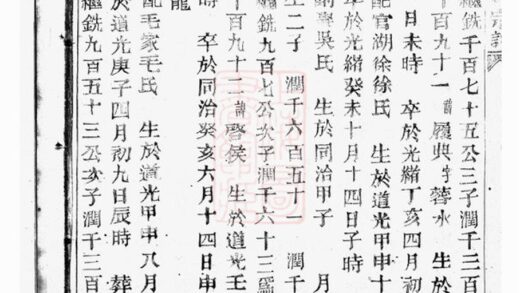 繼銑千百七十五公三子潤千三百
百九十一 諱履典字蓉水 生於
日未時 卒於光緒丁亥四月初
配官湖徐徐氏 生於道光甲申十
卒於光緒癸未十月十四日子時
吳氏 生於同治甲子 月
生二子 潤千六百五十 潤千
繼銑九百七公次子潤千六十三為
千百九十二 諱啓侯 生於道光壬
時 卒於同治癸亥六月十四日申
龍
配毛家毛氏 生於道光甲申八月
於道光庚子四月初九日辰時 葬
繼銑九百五十三公次子潤千三百